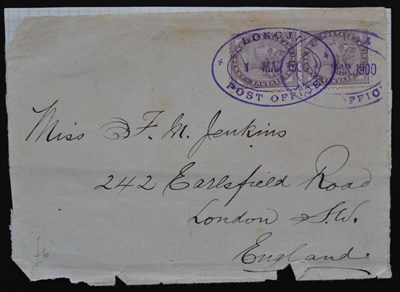 1 MAR 1900
POST OFFICE
MAR 1900
Miss F. M. Jenkins
242 Earlsfield Road
London S.W.
England.